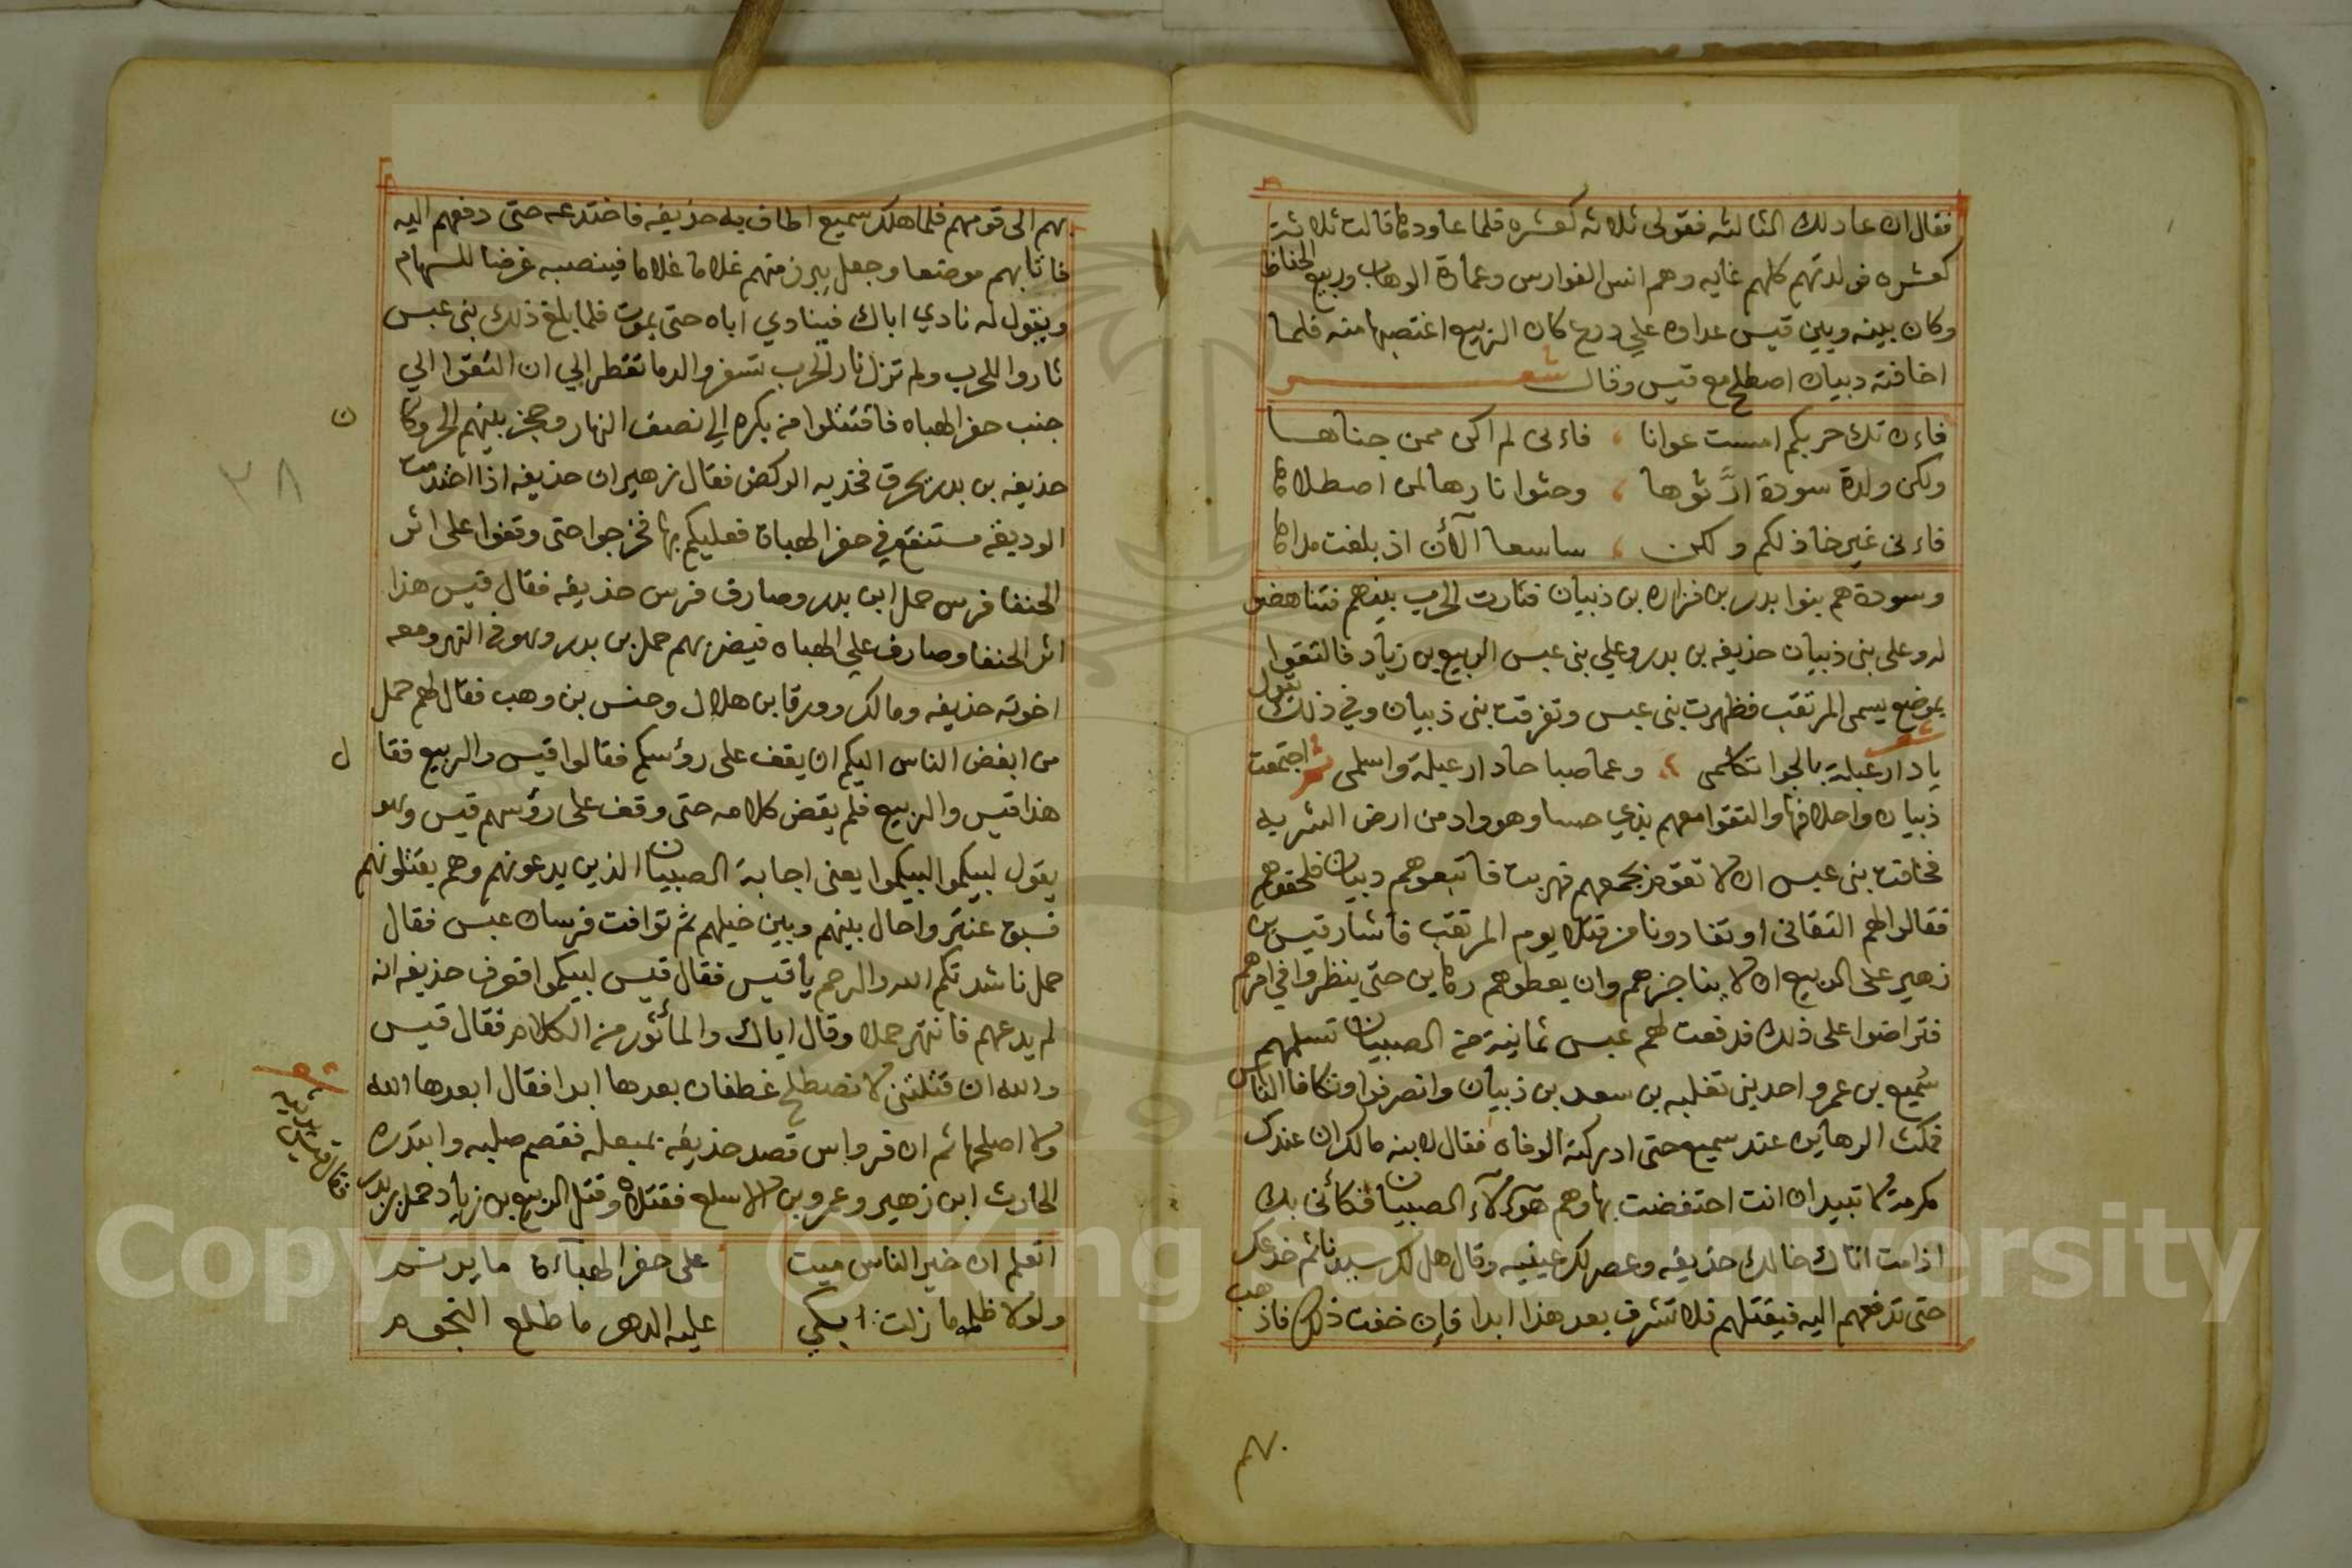 فقال ان عاد لك الثالثه فقولى ثلاثه كعشره فلما عاودها قالت ثلاثة
كعشره فولدتهم كلهم غايه وهم انس الفوارس وعمارة الوهاب وربيع الحفاظ
وكان بينه وبين قيس عداوه علي درع كان الربيع اغتصبها منه فلما
اخافته دبيان اصطلح مع قيس وقال شعر
فاءن تك حربكم امست عوانا ، فاءنى لم اكن ممن جناها
ولكن ولدة سودة ارَّثوها ، وحثوا نارها لمن اصطلاها
فاءنى غير خاذلكم ولكن ، ساسعا الآن اذ بلغت مداها
وسودة هم بنوا بدر بن فزاره بن ذبيان فثارت الحرب بينهم فتناهضوا
له وعلى بنى ذبيان حذيفه بن بدر وعلي بنى عبس الربيع بن زياد فالتقوا
بموضع يسمى المرتقب فظهرت بنى عبس وتفرقت بنى ذبيان وفي ذلك يقول
شعر
يا دار عبلة بالجوا تكلمى ، وعما صباحا دار عبلة واسلمى ثم اجتمعت
ذبيان واحلافها والتقوا معهم بذي حسا وهو واد من ارض الشربه
فخافت بنى عبس ان لا تقوم بجمعهم فهربت فاتبعوهم دبيان فلحقوهم
فقالوا لهم التفانى او تقادونا من قتلا يوم المرتقب فاشار قيس بن
زهير على الربيع ان لا يناجزهم وان يعطوهم رهاين حتى ينظروا في امرهم
فتراضوا على ذلك فدفعت لهم عبس ثمانية من الصبيان تسلمهم
سميع بن عمرو احد بنى تغلبه بن سعد بن ذبيان وانصرفوا وتكافا الناس
فمكث الرهاين عند سميع حتى ادركته الوفاه فقال لابنه مالك ان عندك
مكرمة لا تبيد ان انت احتفضت بها وهم هؤلآء الصبيان فكأنى بك
اذا مت اتاك خالك حذيفه وعصر لك عينيه وقال هلك سيدنا ثم خدعك
حتى تدفعهم اليه فيقتلهم فلا تشرف بعد هذا ابدا فإن خفت ذلك فاذهب
بهم الى قومهم فلما هلك سميع اطاف به حذيفه فاختدعه حتى دفعهم اليه
فاتا بهم موضعا وجعل يبرز منهم غلاما غلاما فينصبه غرضا للسهام
ويقول له نادي اباك فينادي اباه حتى يموت فلما بلغ ذلك بنى عبس
ثاروا للحرب ولم تزل نار الحرب تسعر والدما تقطر الي ان التقوا الي
جنب حفر الهباه فاقتتلوا من بكره الي نصف النهار وحجز بينهم الحر وكان
حذيفه بن بدر يحرق فخذيه الركض فقال زهير ان حذيفه اذا احتدمت
الوديقه مستنقع في حفر الهباة فعليكم بها فخرجوا حتى وقفوا على اثر
الحنفا فرس حمل ابن بدر وصارف فرس حذيفه فقال قيس هذا
اثر الحنفا وصارف علي الهباه فيضر بهم حمل بن بدر وهو في النهر ومعه
اخوته حذيفه ومالك وورقا بن هلال وحنس بن وهب فقال لهم حمل
من ابغض الناس اليكم ان يقف على رؤسكم فقالوا قيس والربيع فقال
هذا قيس والربيع فلم يقض كلامه حتى وقف على رؤسهم قيس وهو
يقول لبيكموا لبيكموا يعنى اجابة الصبيان الذين يدعونهم وهم يقتلونهم
فسبق عنتر واحال بينهم وبين خيلهم ثم توافت فرسان عبس فقال
حمل ناشدتكم الله والرحم يا قيس فقال قيس لبيكموا فعرف حذيفه انه
لم يدعهم فانتهر حملا وقال اياك والمأثور من الكلام فقال قيس
والله ان قتلتنى لا تصطلح غطفان بعدها ابدا فقال ابعدها الله
ولا اصلحها ثم ان قرواس قصد حذيفه بمعبله فقصم صلبه وابتدره
الحارث ابن زهير وعمرو بن الاسلع فقتلاه وقتل الربيع بن زياد حمل بن بدر
فقال قيس يرثيه شعر
اتعلم ان خير الناس ميت على حفر الهباءة ما يريم
ولولا ظلمه ما زلت ابكي عليه الدهر ما طلع النجوم
٣٨